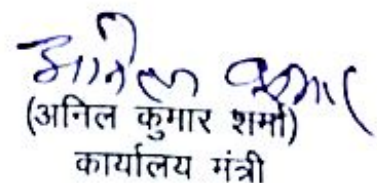 अनिल कुमार
(अनिल कुमार शर्मा)
कार्यालय मंत्री